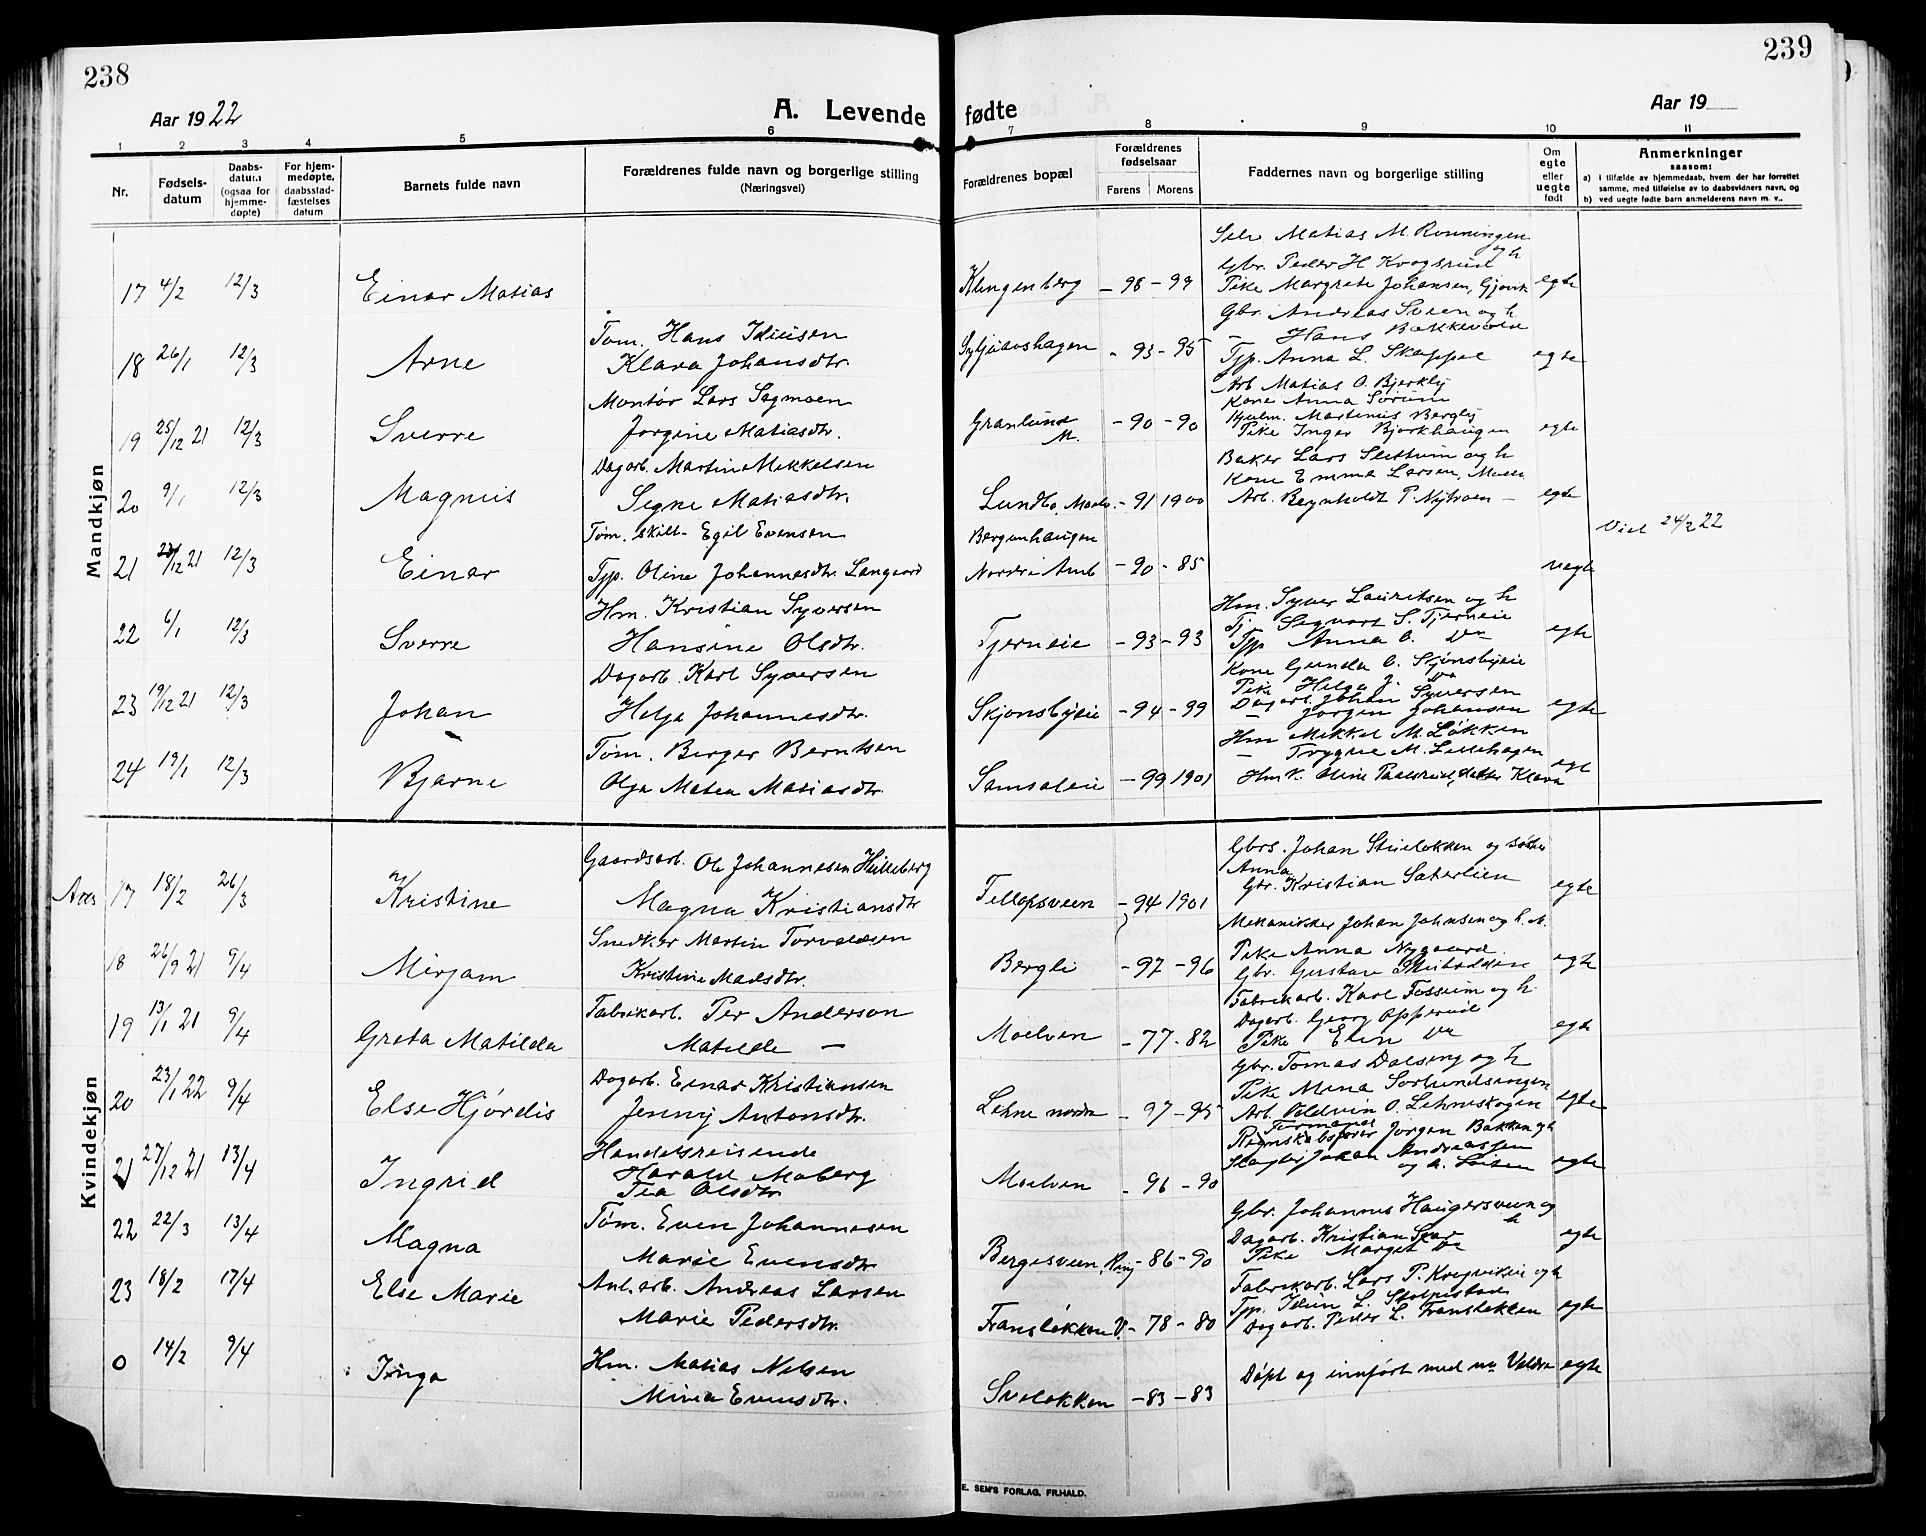 238
Aar 1922
A. Levende
1 2 3 4 5 6
Nr.
Fødsels-datum
Daabs-datum (ogsaa for hjemme-døpte)
For hjem-medøpte, daabsstad-fæstelses datum
Barnets fulde navn
Forældrenes fulde navn og borgerlige stilling
(Næringsvei)
Mandkjøn
17 4/2 12/3 Einar Matias
Tøm. Hans Idiusen
18 26/1 12/3 Arne Klara Johansdtr.
Montør Lars Sagmoen
19 25/12 21 12/3 Sverre Jørgine Matiasdtr.
Dagarb. Martin Mikkelsen
20 9/1 12/3 Magnus Signe Matiasdtr.
Tøm. skill- Egil Evensen
21 12 21 12/3 Einar Tjp. Oline Johannesdtr. Langaard
Hm. Kristian Syversen
22 6/1 12/3 Sverre Hansine Olsdtr.
Dagarb. Karl Syversen
23 19/12 21 12/3 Johan Helga Johannesdtr.
Tøm. Birger Berntsen
24 19/1 12/3 Bjarne Olga Matea Matiasdtr.
Kvindekjøn
Gaardsarb. Ole Johannesen Hulleberg
17 18/2 26/3 Kristine Magna Kristiansdtr
Snedker Martin Torvaldsen
18 26/9 21 9/4 Mirjam Kristine Madsdtr.
Fabrikarb. Per Anderson
19 13/1 21 9/4 Greta Matilda Matilde —
Dagarb. Einar Kristiansen
20 23/1 22 9/4 Else Hjørdis Jenny Antonsdtr.
Handelsreisende
21 27/12 21 13/4 Ingrid Harald Moberg
Tea Olsdtr.
Tøm. Even Johannesen
22 22/3 13/4 Magna Marie Evensdtr
23 18/2 17/4 Else Marie Anl. arb. Andreas Larsen
Marie Pedersdtr.
0 14/2 9/4 Inga Hm. Matias Nilsen
Mina Evensdtr.
239
fødte
Aar 19
7 8 9 10 11
Forældrenes bopæl
Forældrenes fødselsaar
Farens Morens
Faddernes navn og borgerlige stilling
Om egte eller uegte født
Anmerkninger
saasom:
a) i tilfælde av hjemmedaab, hvem der har forrettet samme, med tilføielse av to daabsvidners navn, og
b) ved uegte fødte barn anmelderens navn m. v..
Selv. Matias M. Rønningen
og h
Gbr. Peder H Krogsrud
Klingenberg – 98 – 99 Pike Margrete Johansen, Gjøvik egte
Gbr. Andreas Sveen og h.
— Hans Bakkevolden
– 93 – 95 Tjp. Anna L. Skappel egte
Arb Matias O. Bjerkly
Kone Anna Sørum
Granlund M. – 90 – 90 Hjulm. Martinus Bergly
Pike Inger Bjørkhaugen egte
Baker Lars Slettum og h
Kone Emma Larsen, Moelv
Lundbo, Moelv. – 91 1900 Arb. Reynholdt P. Nytroen – egte
Viel 24/2 22
Bergenhaugen
Nordre Aml – 90 – 85 uegte
Hm. Syver Lauritsen og h
Tj Sigvart S. Tjerneie
Tjerneie – 93 – 93 Tjp Anna O. Do egte
Kone Gunda O. Skjønsbyeie
Pike Helga J. Do
Skjønsbyeie – 94 – 99 Dagarb. Johan Syversen
— Jørgen Johansen egte
Hm Mikkel M. Løkken
— Trygve M. Lillehagen
Samsaleie – 99 1901 Hm k. Oline Paalsrud, datter Klara egt
Gbrs. Johan Stueløkken og søster
Anna
Gbr. Kristian Sæterlien
Tellopsveen – 94 1901 egte
Mekaniker Johan Johnsen og h. M.
Pike Anna Nygaard
Bergli – 97 – 96 Gbr. Gustav egte
Fabrikarb. Karl Fossum og h.
Dagarb. Georg Opperud
Moelven – 77 – 82 Pike Elin Do egte
Gbr. Tomas Dalseng og h
Pike Mina Sørlundsengen
Lehne nordre – 97 – 95 Arb. Oldvin O. Lehneskogen egte
Formand
Regnskabsfører Jørgen Bakken og h
Johan Andreassen
Moelven – 96 – 90 og h. Loisen egte
Gbr. Johannes Haugersveen og
h
Dagarb. Kristian Skar
Bergesveen, Ring – 86 – 90 Pike Margit Do egte
Fabrikarb. Lars P. Kregvikeie og h
Tjp. Idun L. Stolpestad
Fransløkken V. – 78 – 80 Dagarb. Peder L. Fransløkken egte
Sveløkken – 83 – 83 Døpt og innført med no Veldre egte
E. SEM'S FORLAG, FR.HALD.